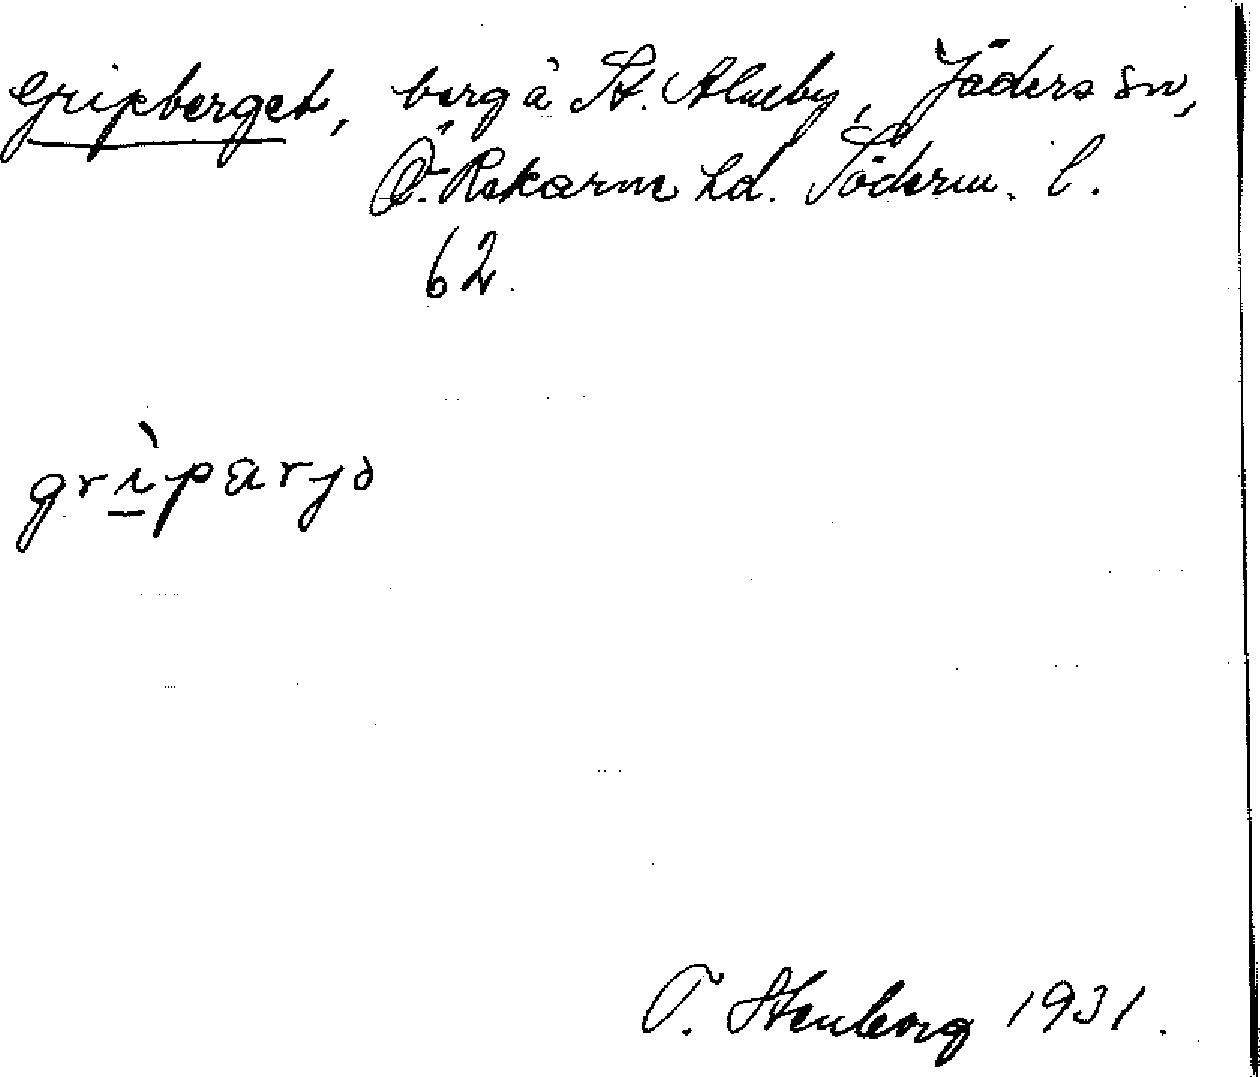 Gripberget, berg å St. Alneby, Jäders sn,
Ö. Rekarne hd. Söderm. l.
62.
grìpærjə
T. Stenberg 1931.